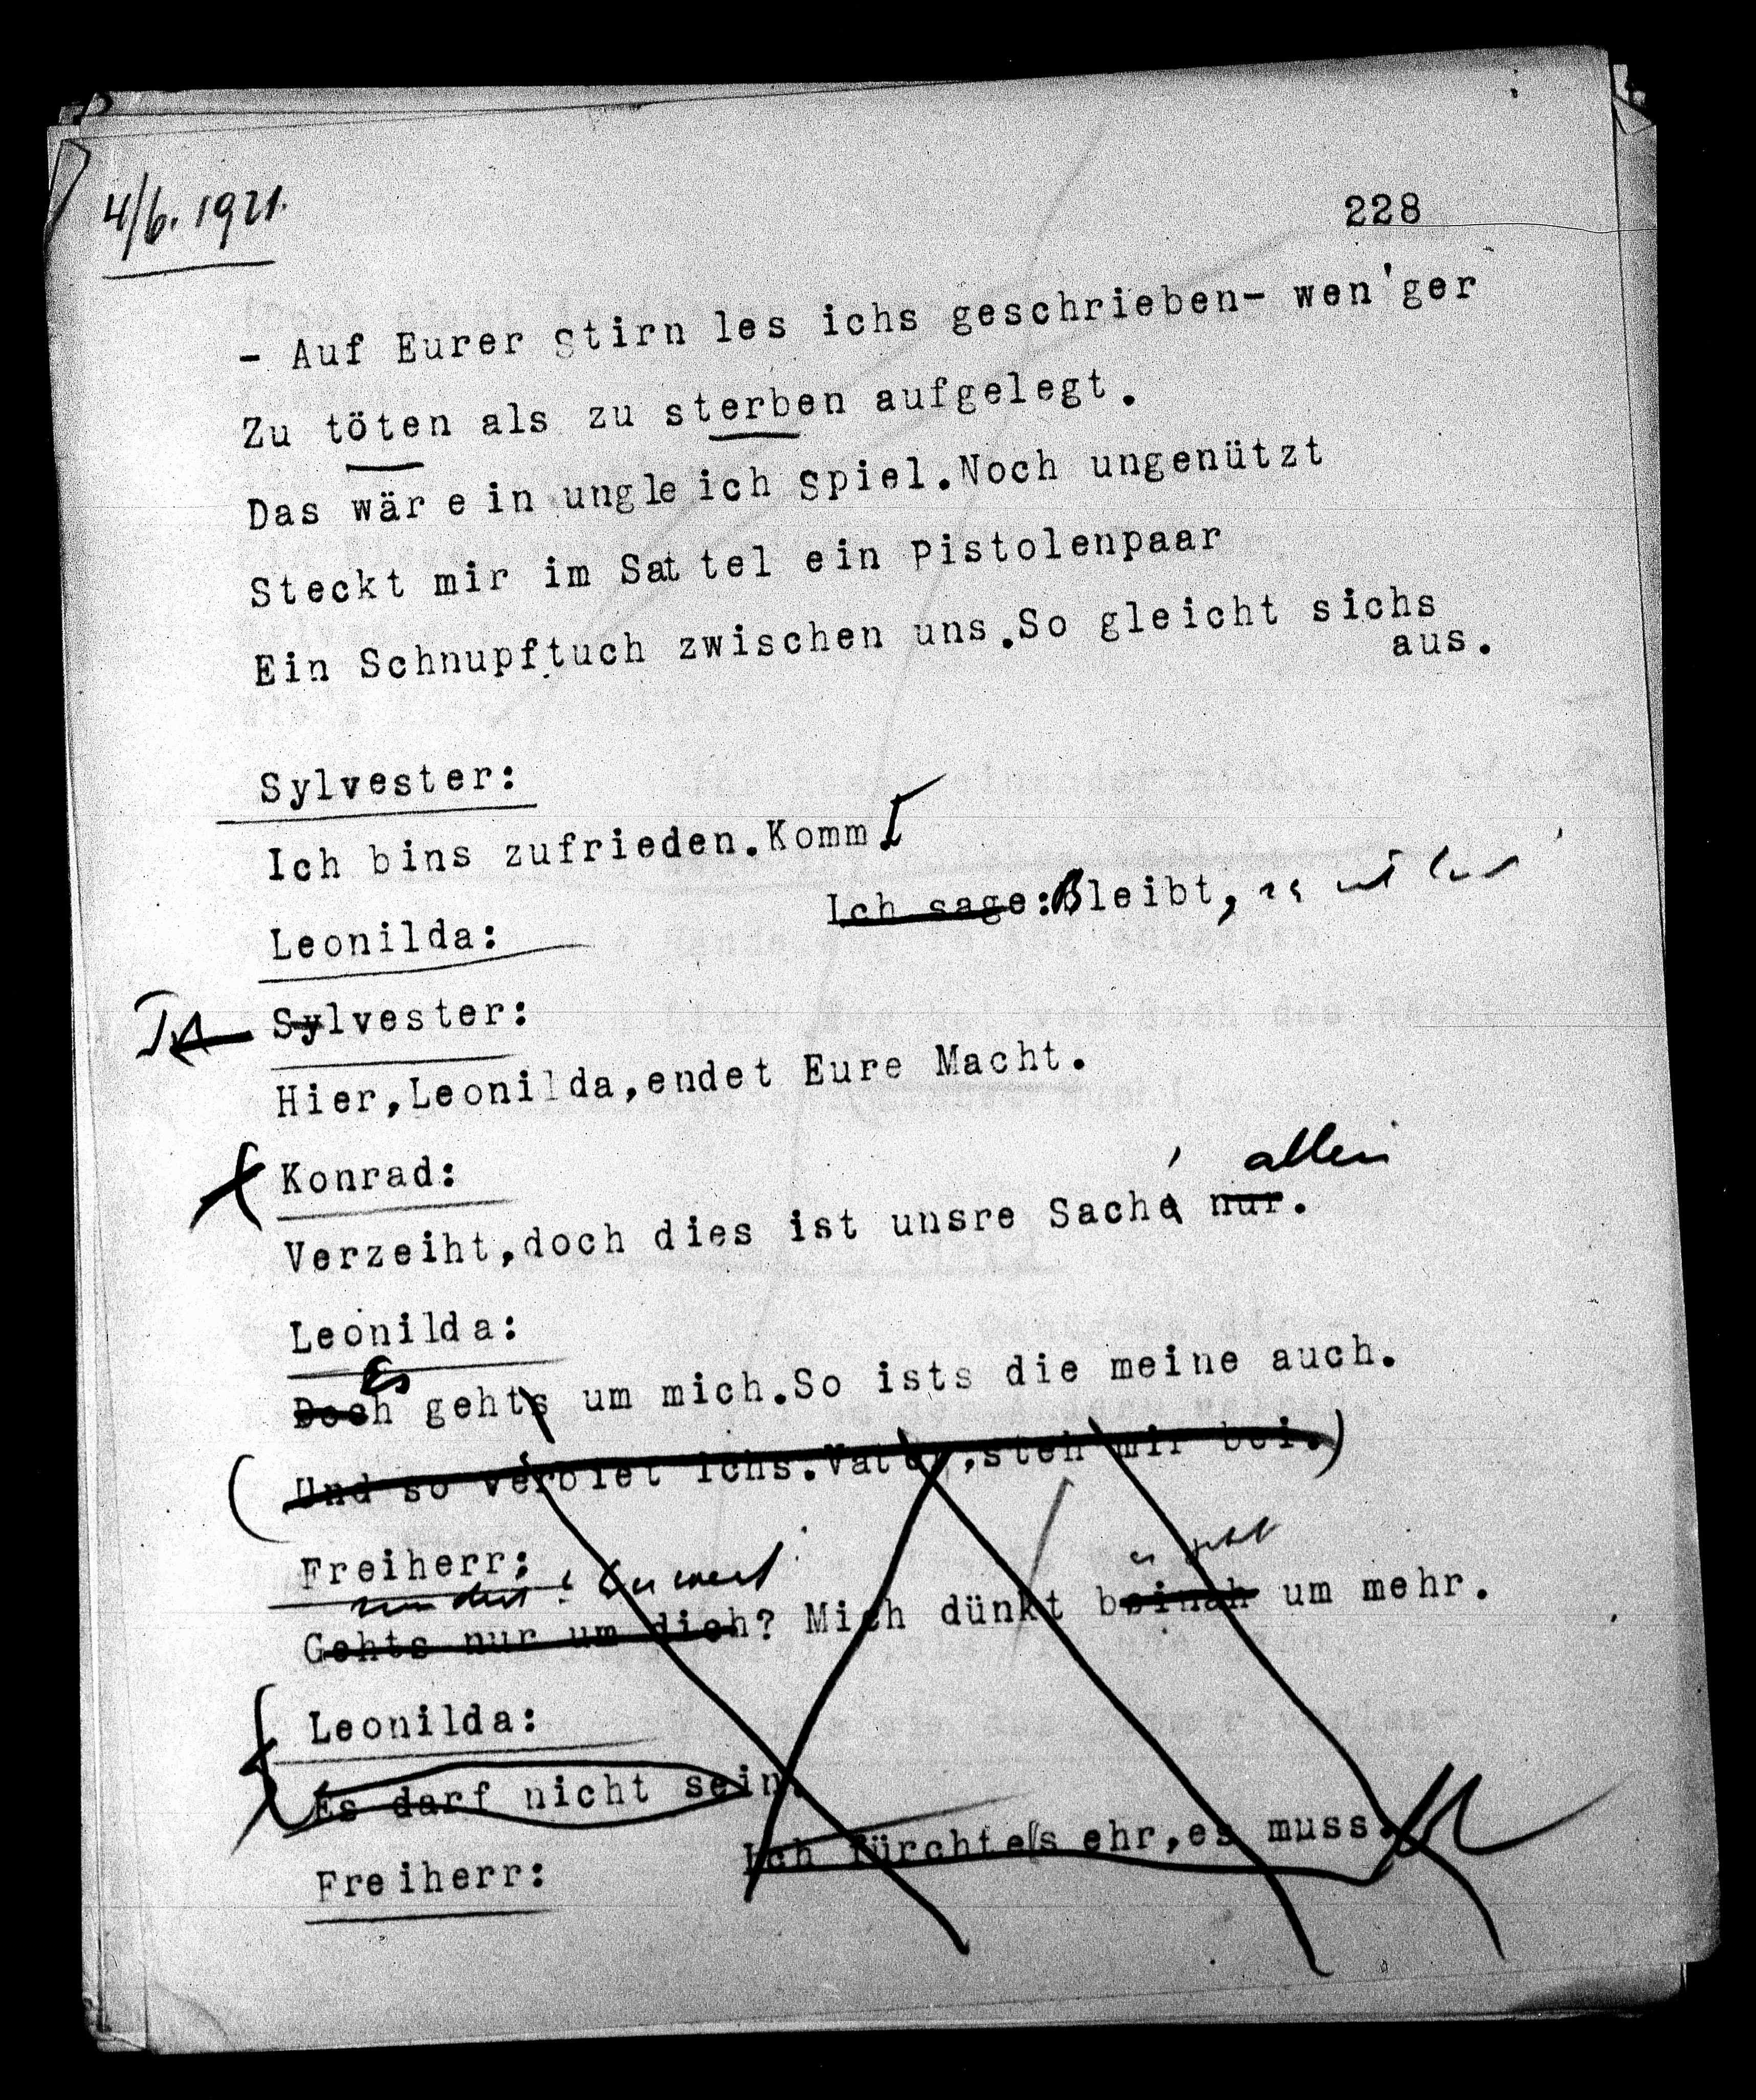 4/6. 1921.
228
- Auf Eurer Stirn les ichs geschrieben- wen'ger
Zu töten als zu sterben aufgelegt.
Das wär ein ungleich Spiel.Noch ungenützt
Steckt mir im Sattel ein Pistolenpaar
Ein Schnupftuch zwischen uns.So gleicht sichs
aus.
Sylvester:
Ich bins zufrieden.Komm
Ich sage:Bleibt,
Leonilda:
Sylvester:
Hier,Leonilda,endet Eure Macht.
Konrad:
allein
Verzeiht,doch dies ist unsre Sache nur.
Leonilda:
Es
Doch gehts um mich.So ists die meine auch.
(Und so verbiet ichs.Vater,steh mir bei.)
Freiherr:
Gehts nur um dich? Mich dünkt beinah um mehr.
Leonilda:
Es darf nicht sein.
Ich fürchte s ehr,es muss.
Freiherr: